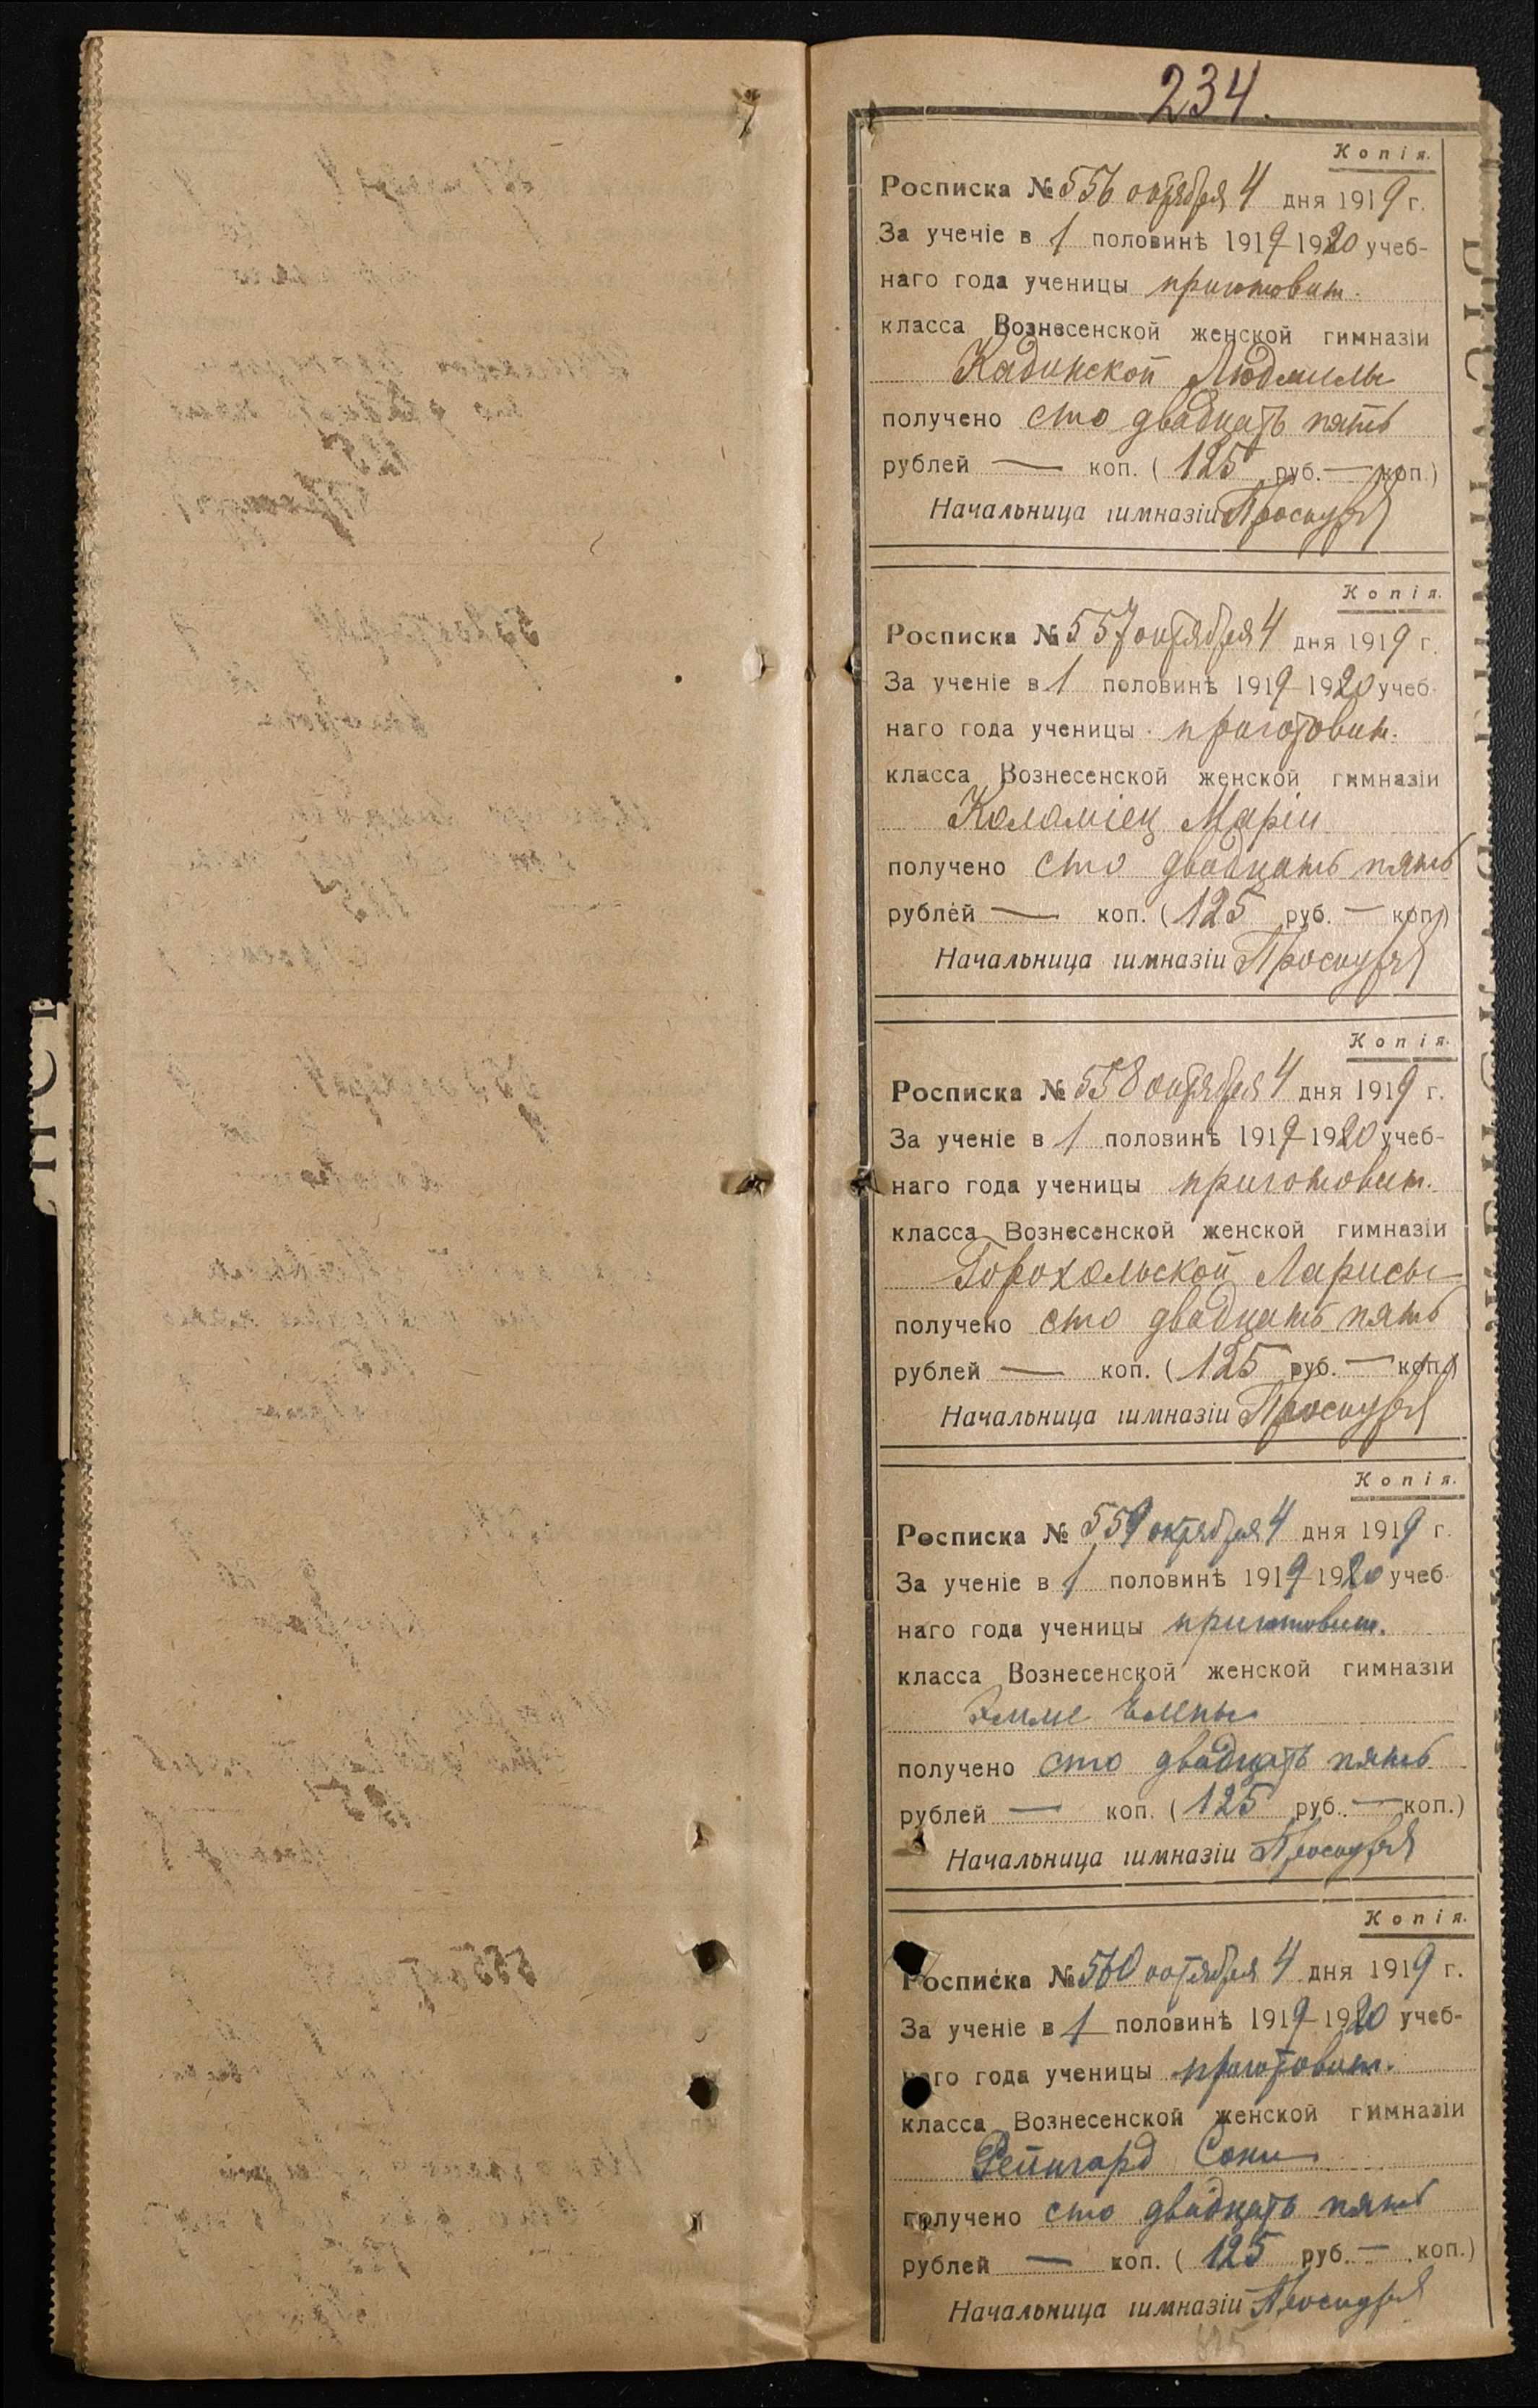 234.
Копія.
Росписка № 556 октября 4 дня 1919 г.
За ученіе в 1 половинѣ 1919-1920 учеб-
наго года ученицы приготовит.
класса Вознесенской женской гимназіи
Кадинской Людмилы
получено сто двадцать пять
рублей — коп. (125 руб. — коп.)
Начальница гимназіи Проскуря
Копія.
Росписка № 557 октября 4 дня 1919 г.
За ученіе в 1 половинѣ 1919-1920 учеб-
наго года ученицы приготовит.
класса Вознесенской женской гимназіи
Коломіец Маріи
получено сто двадцать пять
рублей — коп. (125 руб. — коп.)
Начальница гимназіи Проскуря
Копія.
Росписка № 558 октября 4 дня 1919 г.
За ученіе в 1 половинѣ 1919-1920 учеб-
наго года ученицы приготовит.
класса Вознесенской женской гимназіи
Горохольской Ларисы
получено сто двадцать пять
рублей — коп. (125 руб. — коп.)
Начальница гимназіи Проскуря
Копія.
Росписка № 559 октября 4 дня 1919 г.
За ученіе в 1 половинѣ 1919-1920 учеб-
наго года ученицы приготовит.
класса Вознесенской женской гимназіи
Эмме Елены
получено сто двадцать пять
рублей — коп. (125 руб. — коп.)
Начальница гимназіи Проскуря
Копія.
Росписка № 560 октября 4 дня 1919 г.
За ученіе в 1 половинѣ 1919-1920 учеб-
наго года ученицы приготовит.
класса Вознесенской женской гимназіи
Рейнгард Сони
получено сто двадцать пять
рублей — коп. (125 руб. — коп.)
Начальница гимназіи Проскуря
625